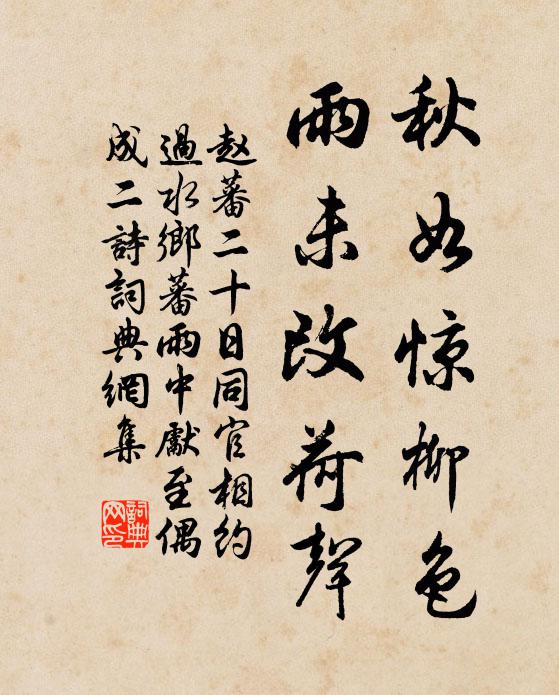 秋如惊柳色
雨未改荷聲
赵蕃二十日同官相约
過水鄉蕃雨中獻至偶
成二詩詞典網集
詞典网印